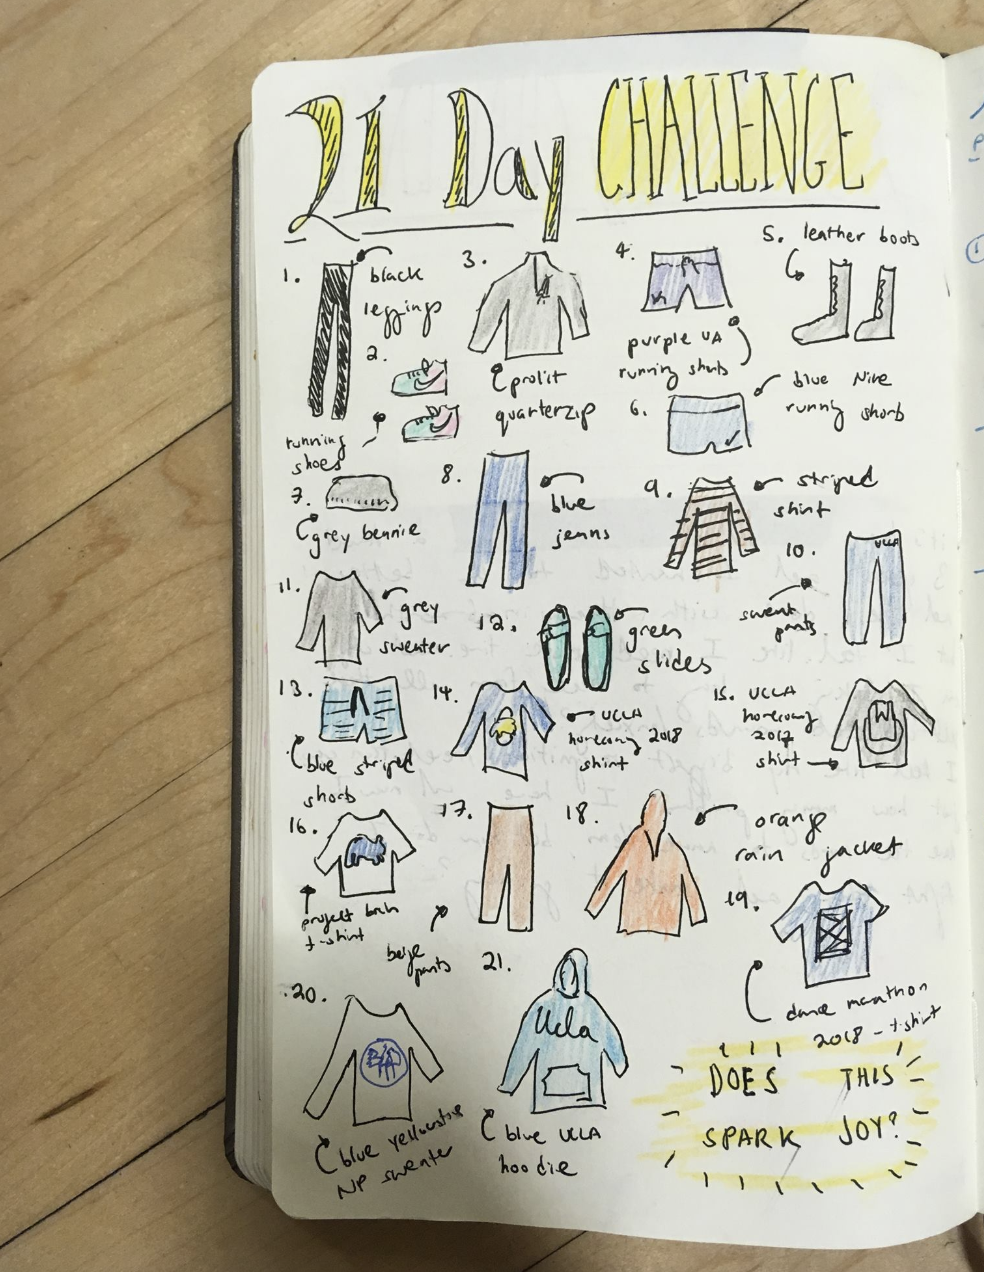 21 Day CHALLENGE
1.
black
leggings
2.
running
shoes
3.
prolit
quarterzip
4.
purple UA
running shorts
5. leather boots
6.
blue Nike
running shorts
7.
grey bennie
8.
blue
jeans
9.
striped
shirt
10.
UCLA
sweat
pants
11.
grey
sweater
12.
green
slides
13.
blue striped
shorts
14.
UCLA
2018
shirt
15. UCLA
2017
shirt
16.
project
t-shirt
17.
beige
pants
18.
orange
rain jacket
19.
dance marathon
2018 - t-shirt
20.
blue yellowstone
NP sweater
21.
Ucla
blue UCLA
hoodie
DOES THIS
SPARK JOY?